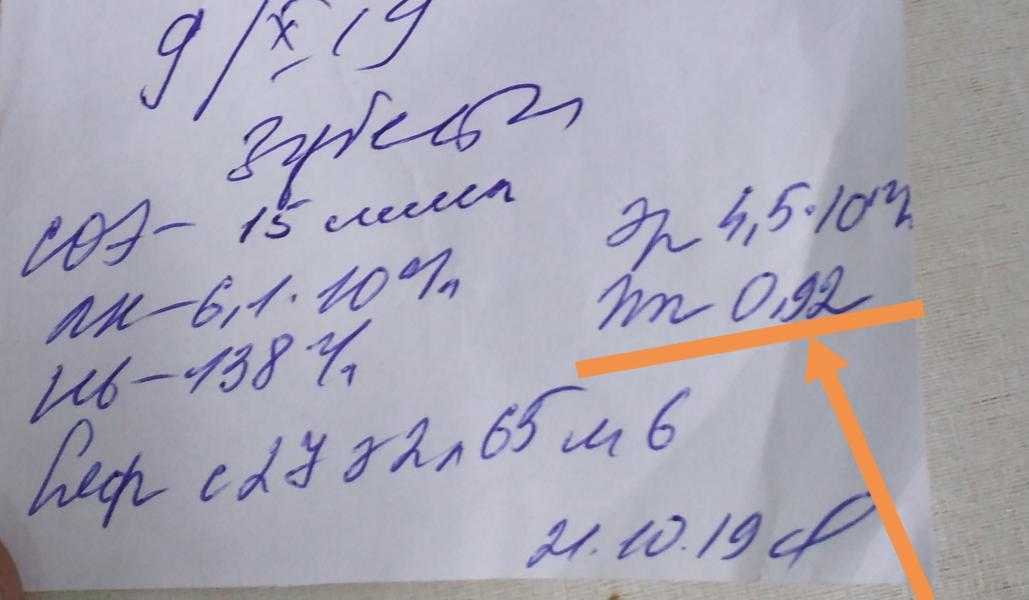 9/X 19
СОЭ – 15 мм/ч Эр 4,5·10¹²/л
лк – 6,1·10⁹/л цп 0,92
Нб – 138 г/л
с 27 э2 л 65 м 6
21.10.19